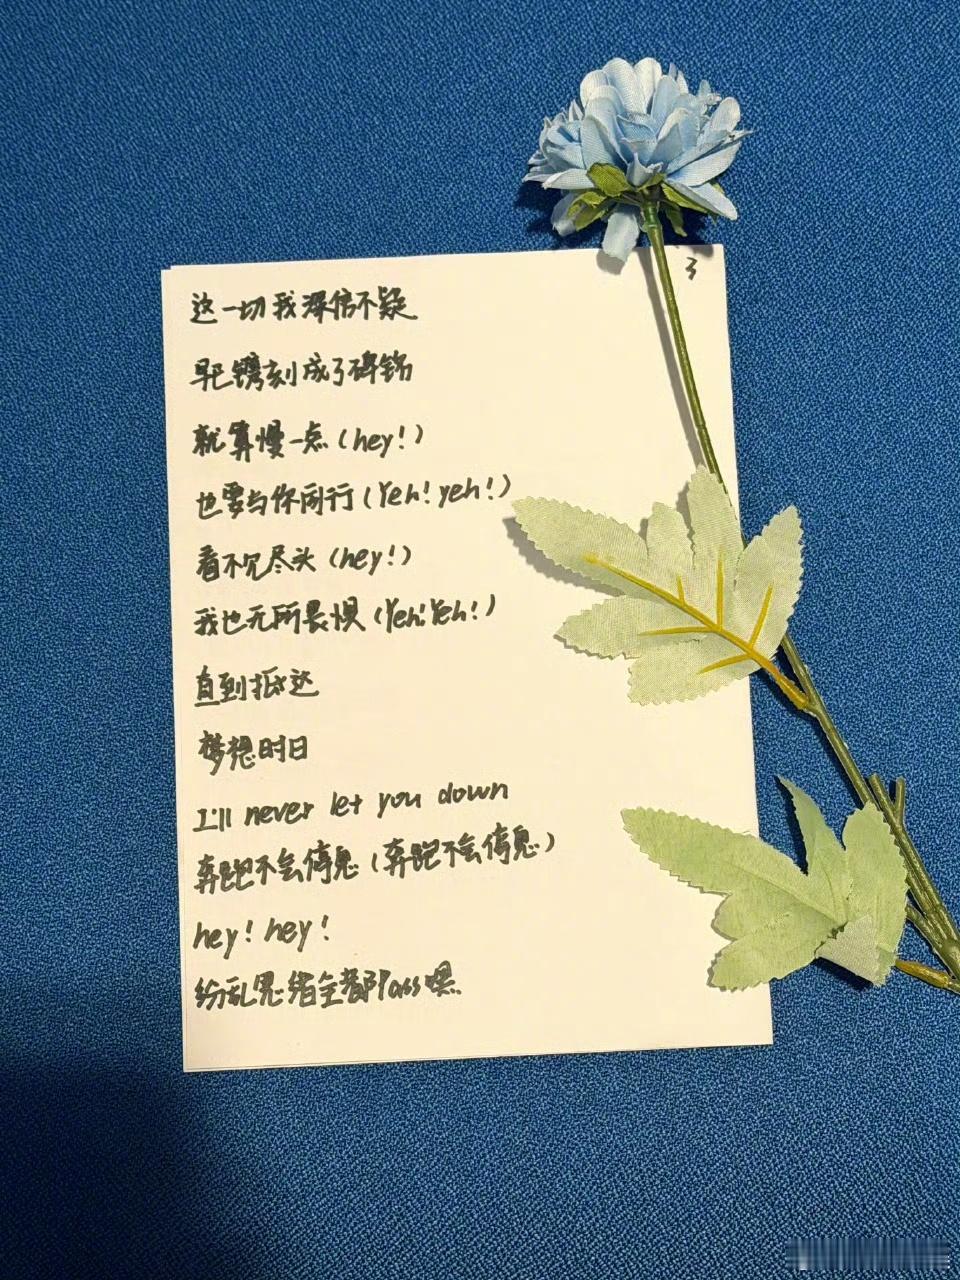 3
这一切我深信不疑
早已镌刻成了碑铭
就算慢一点（hey！）
也要与你同行（Yeh！yeh！）
看不见尽头（hey！）
我也无所畏惧（Yeh！Yeh！）
直到抵达
梦想时日
I'll never let you down
奔跑不会停息（奔跑不会停息）
hey！hey！
纷乱思绪全都Pass嘿